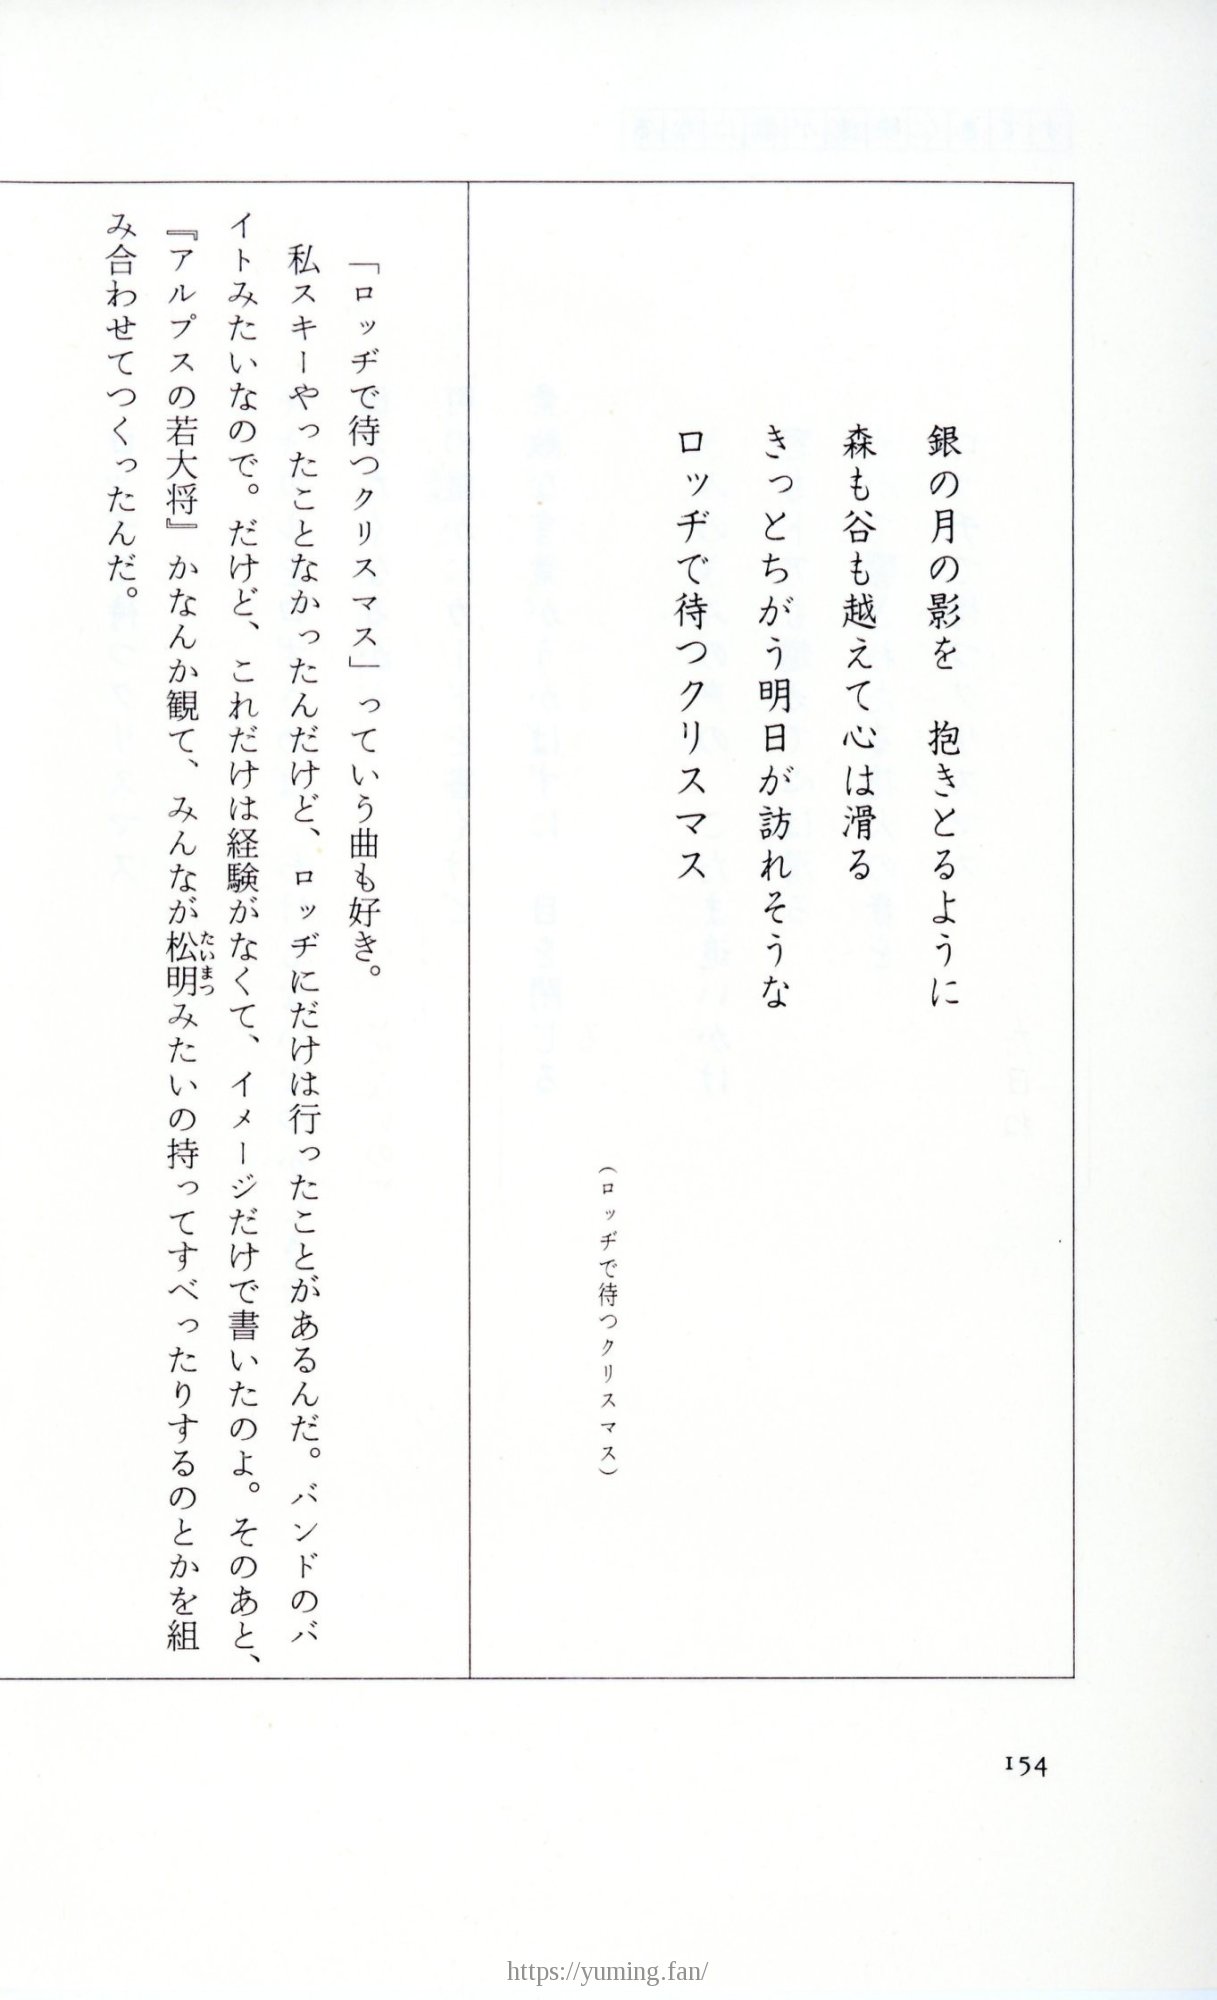 銀の月の影を　抱きとるように
森も谷も越えて心は滑る
きっとちがう明日が訪れそうな
ロッヂで待つクリスマス
（ロッヂで待つクリスマス）
「ロッヂで待つクリスマス」っていう曲も好き。
私スキーやったことなかったんだけど、ロッヂにだけは行ったことがあるんだ。バンドのバ
イトみたいなので。だけど、これだけは経験がなくて、イメージだけで書いたのよ。そのあと、
『アルプスの若大将』かなんか観て、みんなが松明みたいの持ってすべったりするのとかを組
たいまつ
み合わせてつくったんだ。
154
https://yuming.fan/